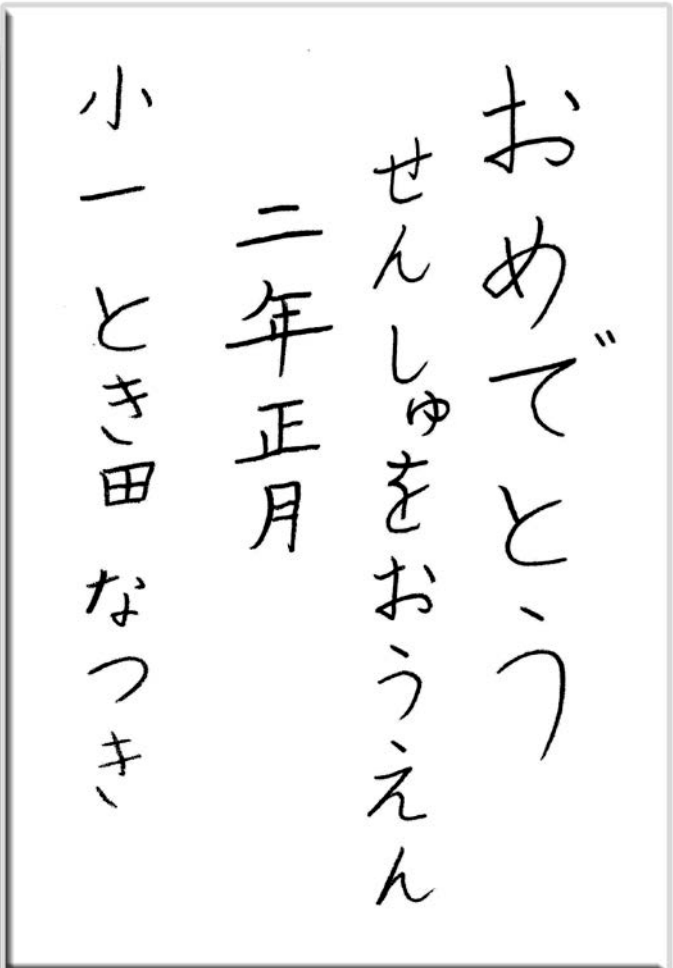 おめでとう
せんしゅをおうえん
二年正月
小一 とき田 なつき